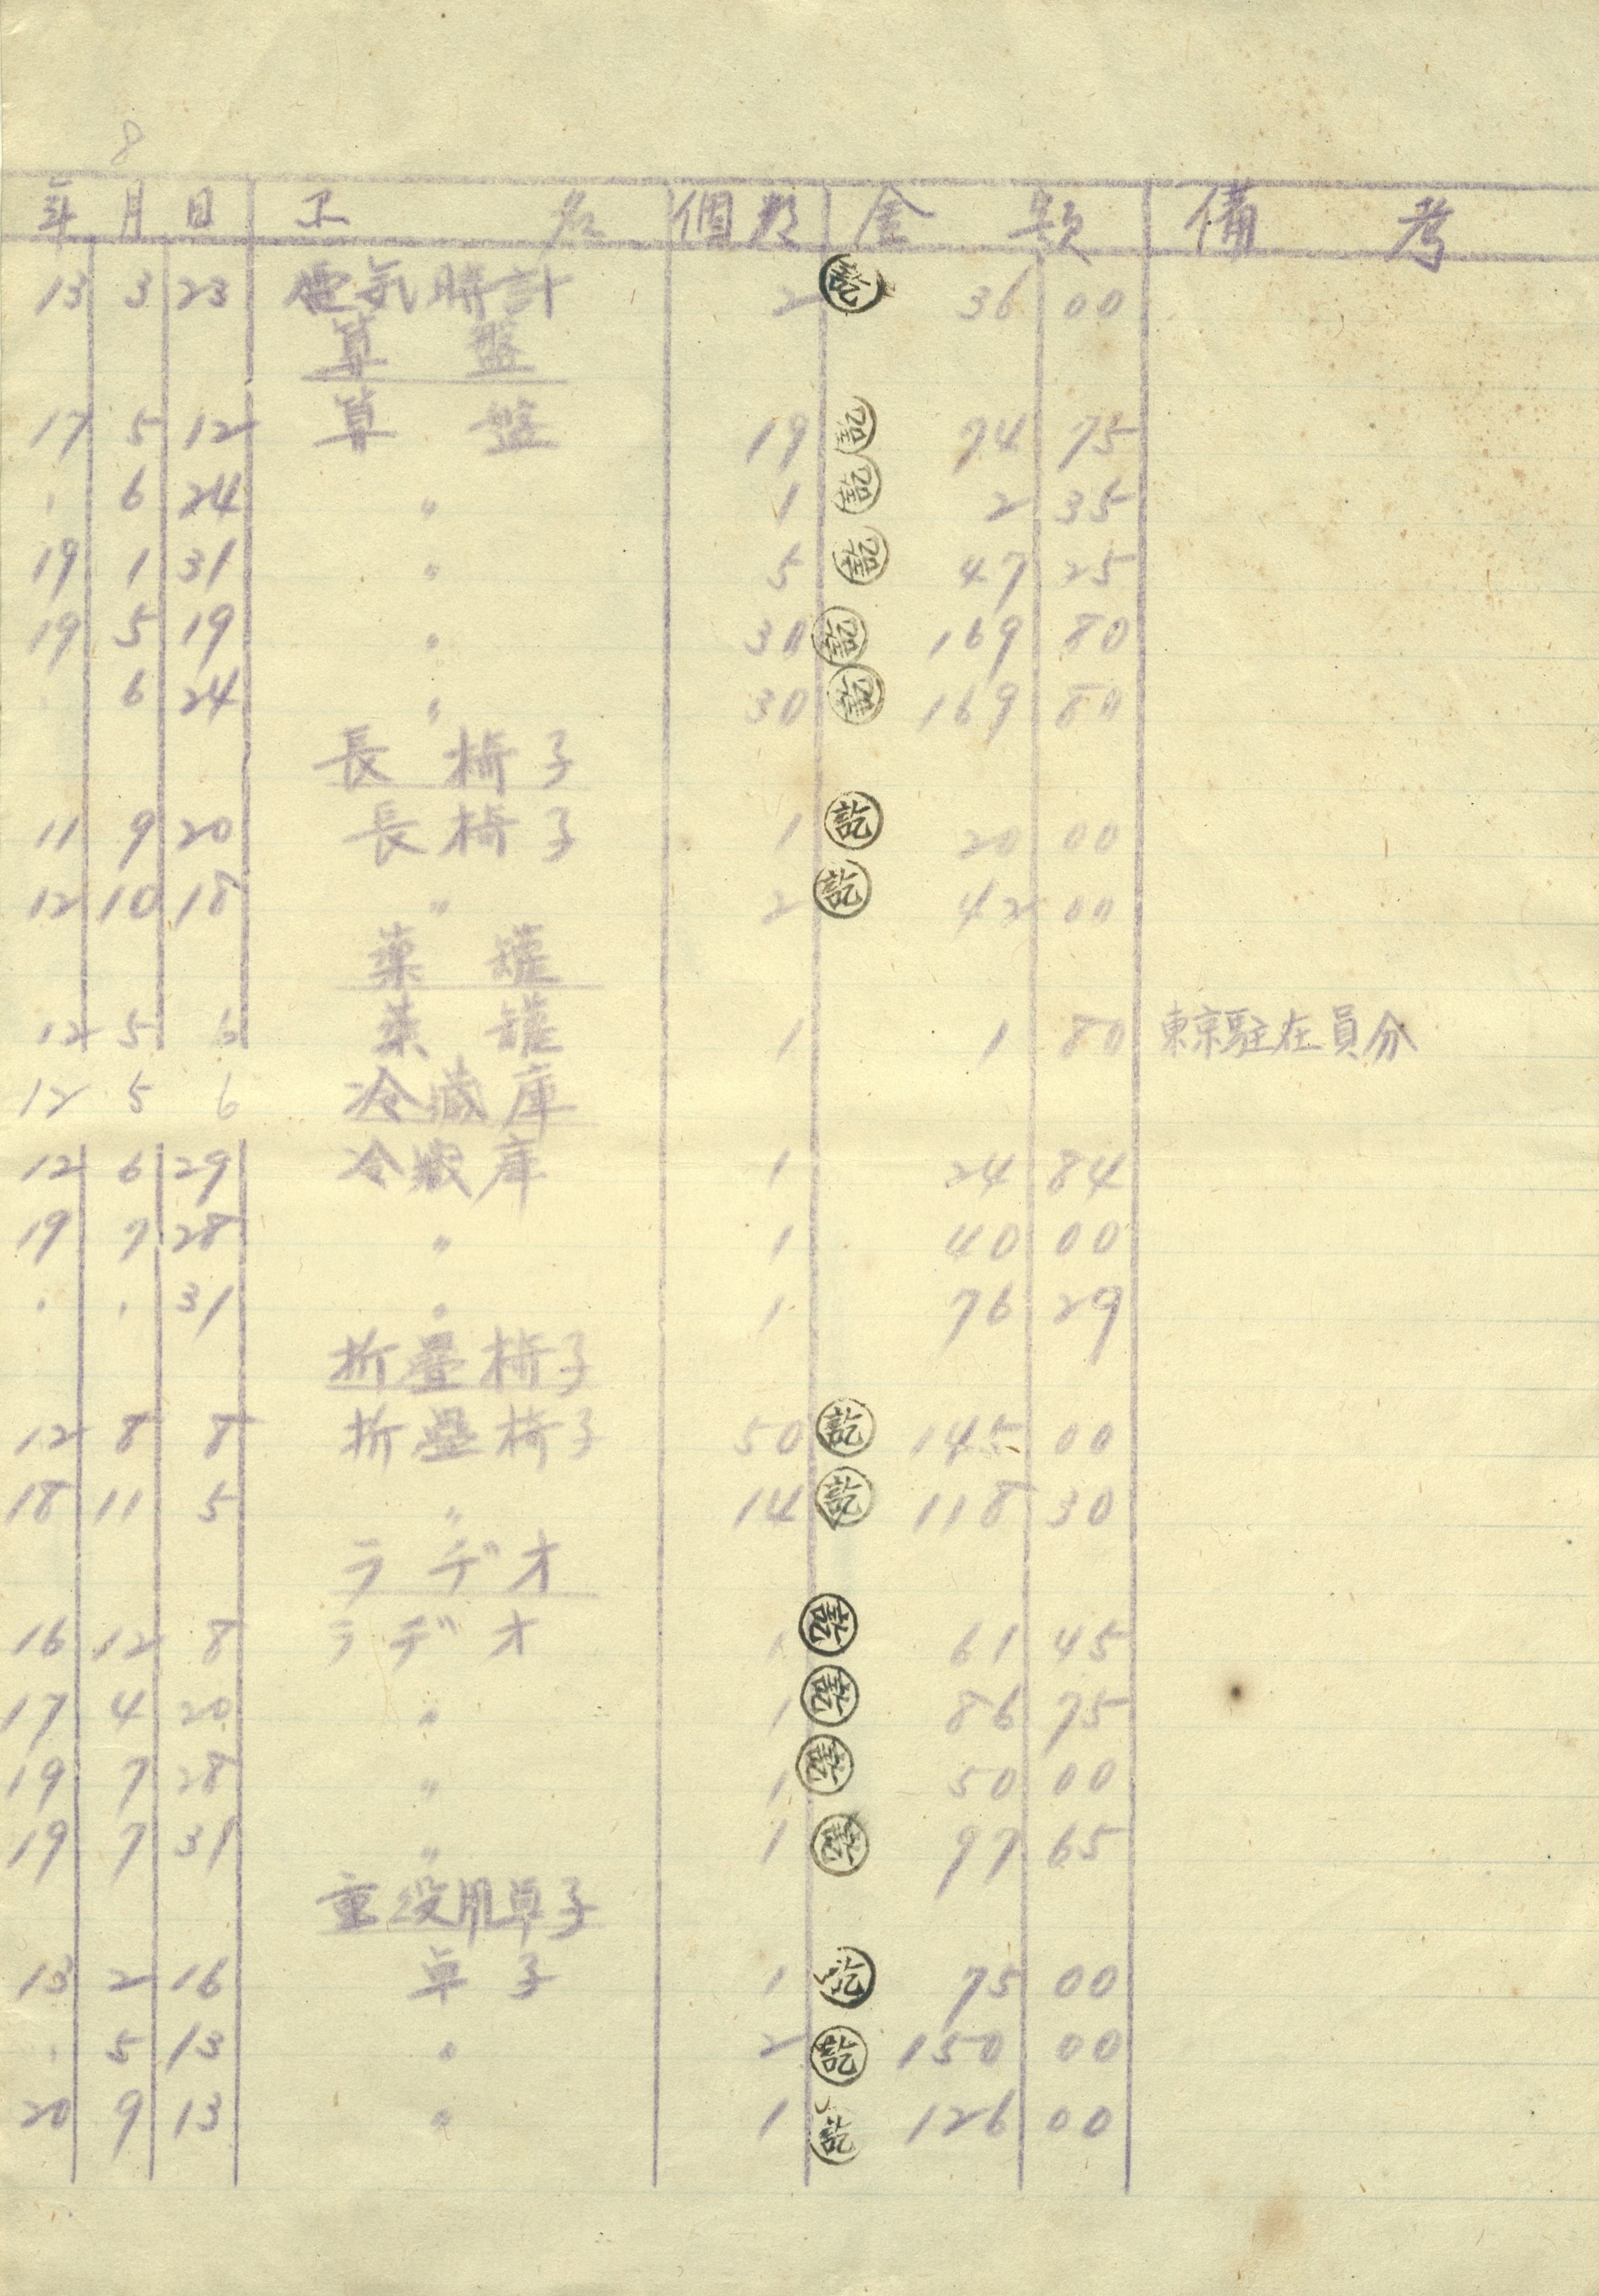 8
年 月 日 名 個数 金 額 備 考
13 3 23 電気時計 2 訖 36 00
算 盤
17 5 12 算 盤 19 訖 74 75
〃 6 24 〃 1 訖 2 35
19 1 31 〃 5 訖 47 25
19 5 19 〃 30 訖 169 80
〃 6 24 〃 30 訖 169 80
長 椅 子
11 9 20 長 椅 子 1 訖 20 00
12 10 18 〃 2 訖 42 00
薬 罐
12 5 6 薬 罐 1 1 80 東京駐在員分
12 5 6 冷蔵庫
12 6 29 冷蔵庫 1 24 84
19 7 28 〃 1 40 00
〃 〃 31 〃 1 76 29
折疊椅子
12 8 8 折疊椅子 50 訖 145 00
18 11 5 〃 14 訖 118 30
ラ ヂ オ
16 12 8 ラ ヂ オ 1 訖 61 45
17 4 20 〃 1 訖 86 75
19 7 28 〃 1 訖 50 00
19 7 31 〃 1 訖 97 65
重役用卓子
13 2 16 卓 子 1 訖 75 00
〃 5 13 〃 2 訖 150 00
20 9 13 〃 1 訖 126 00